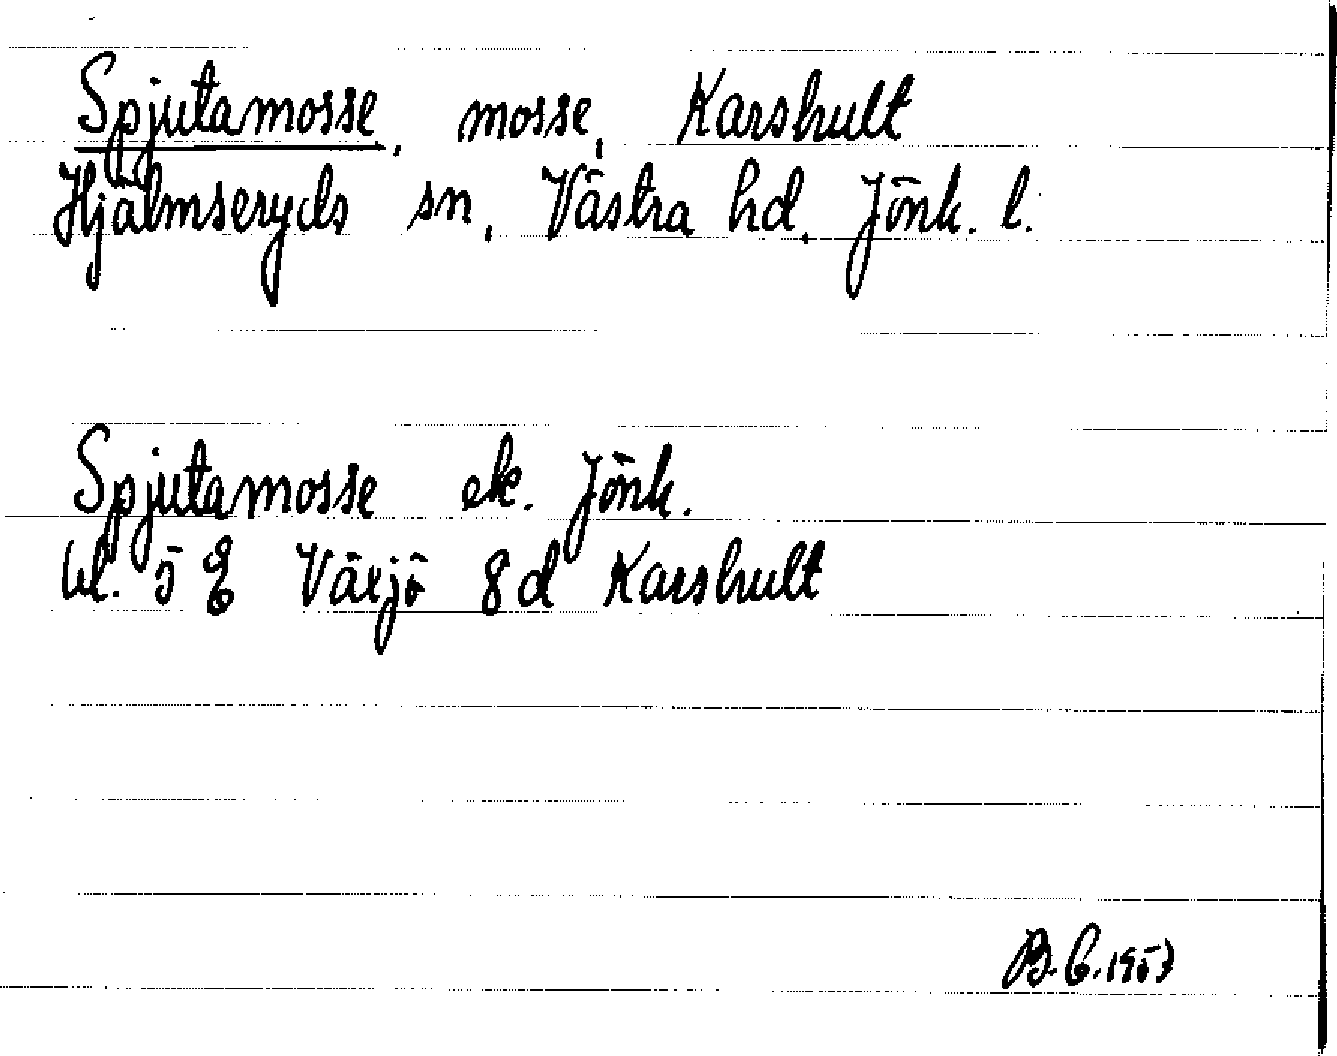 Spjutamosse, mosse, Karshult
Hjälmseryds sn, Västra hd, Jönk. l.
Spjutamosse ek. Jönk.
bl. 5 E Växjö 8 d Karshult
B.C. 1953